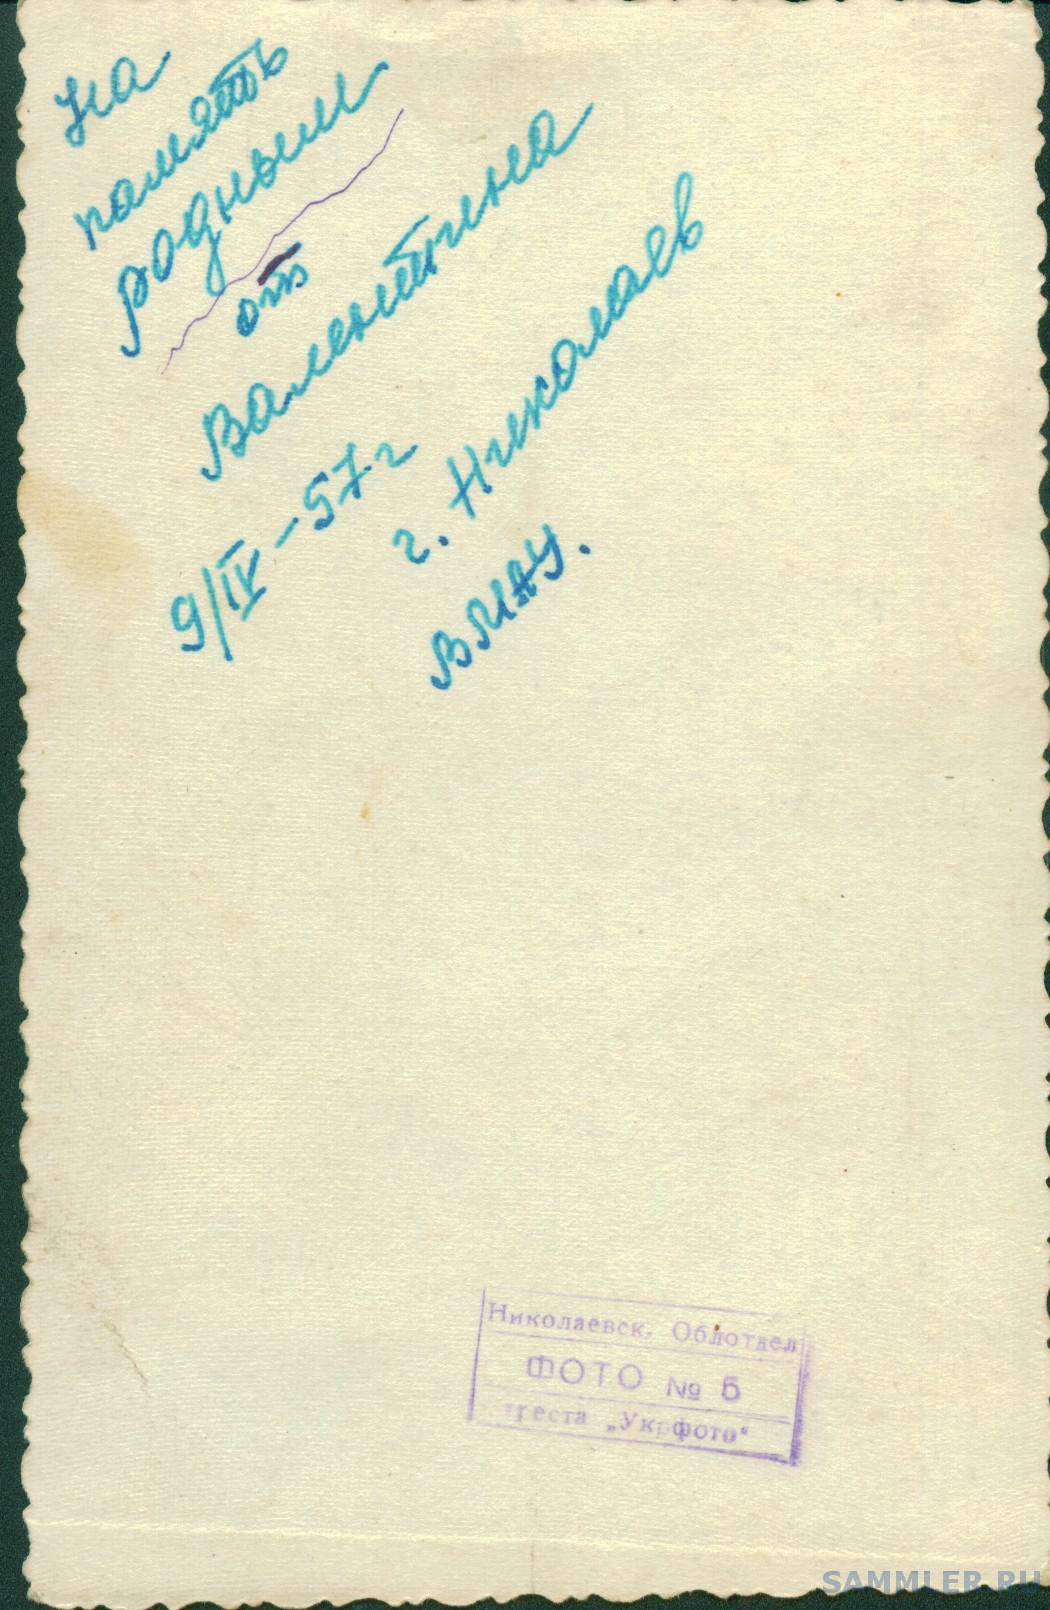 На
память
родным
от
Валентина
9/IV-57 г
г. Николаев
ВМАУ.
Николаевск. Облотдел
ФОТО № 5
треста „Укрфото"
SAMMLER.RU